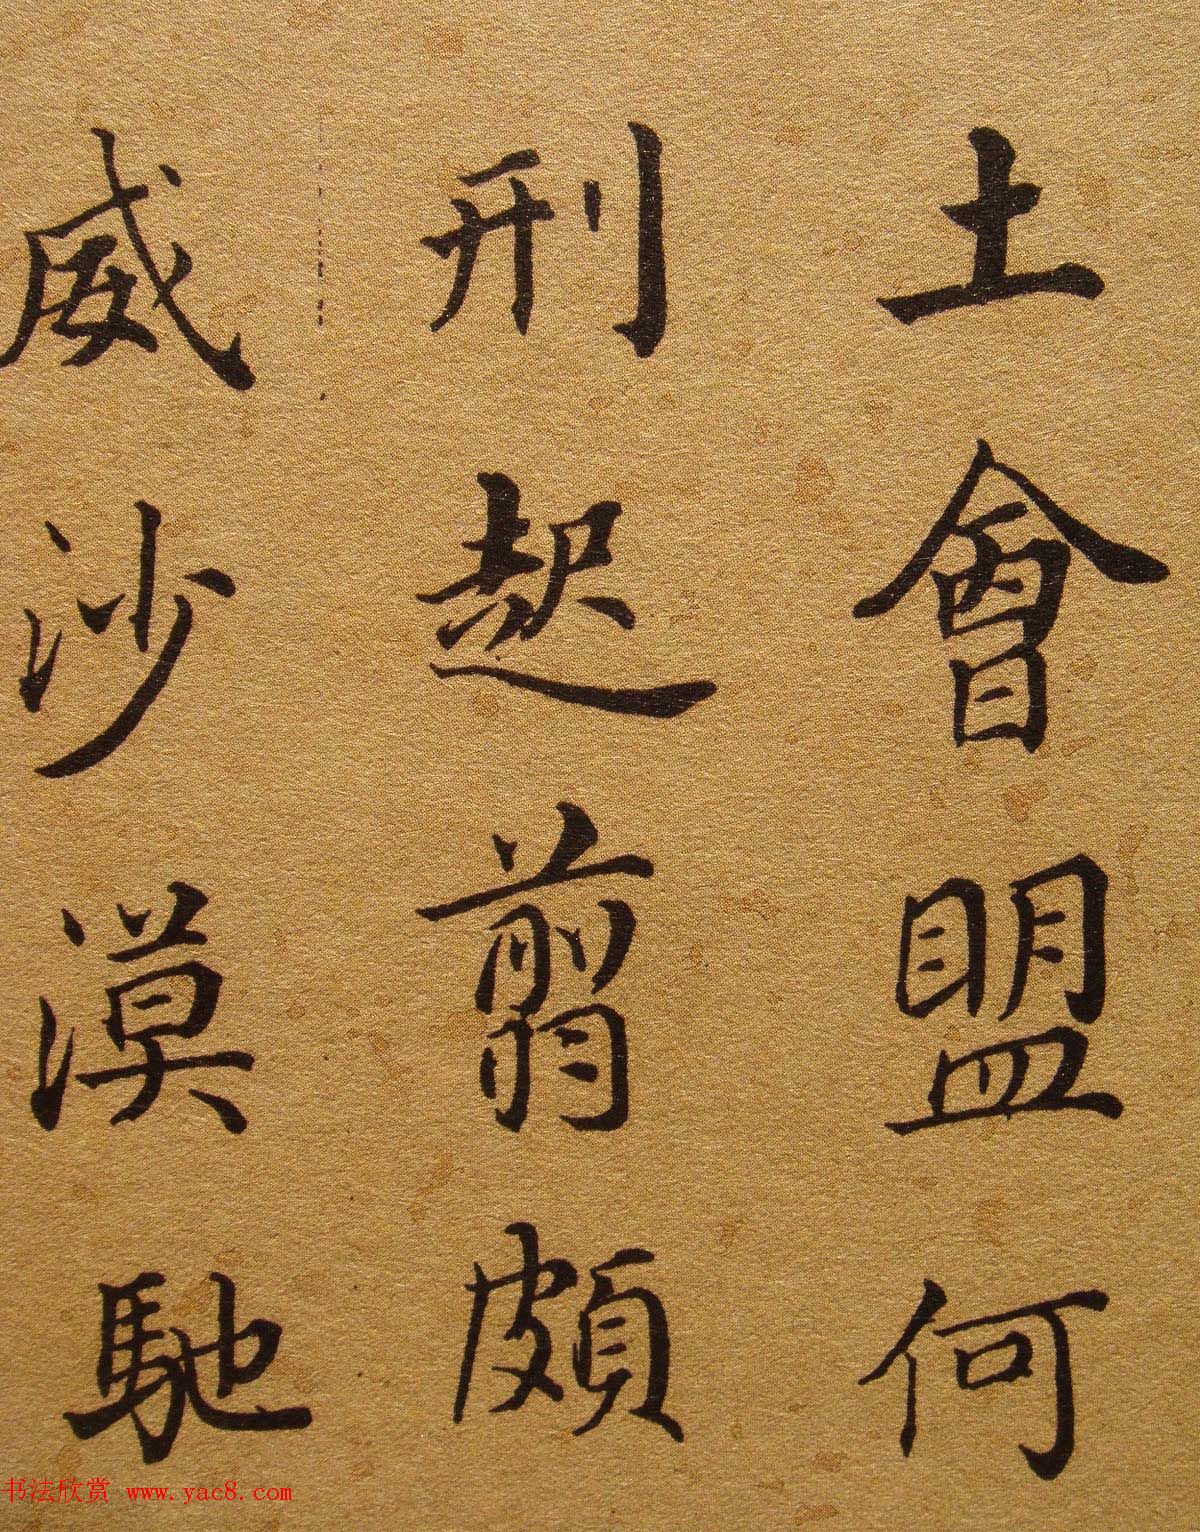 土會盟何
刑起翦頗
威沙漠馳
书法欣赏 www.yac8.com